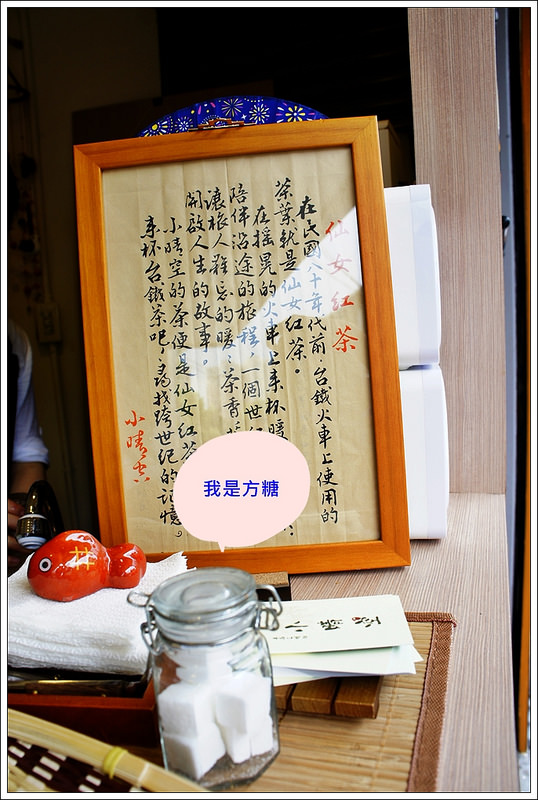 仙女紅茶
在民國八十年代前，台鐵火車上使用的
茶葉就是仙女紅茶。
在搖晃的火車上来杯暖
陪伴沿途的旅程，一個世紀
讓旅人難忘的暖、茶香
開啟人生的故事。
小晴空的茶便是仙女紅茶
来杯台鐵茶吧，尋找跨世纪的记憶。
小晴空
我是方糖